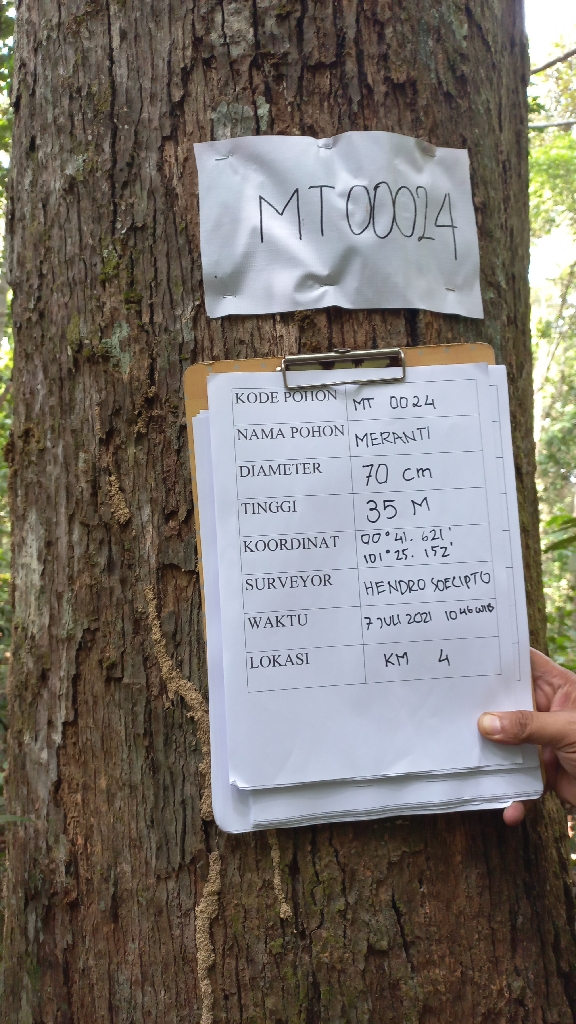 MT 00024
KODE POHON MT 0024
NAMA POHON MERANTI
DIAMETER 70 cm
TINGGI 35 M
KOORDINAT 00° 41. 621'
101° 25. 152'
SURVEYOR HENDRO SOECIPTO
WAKTU 7 JULI 2021 10 46 WIB
LOKASI KM 4